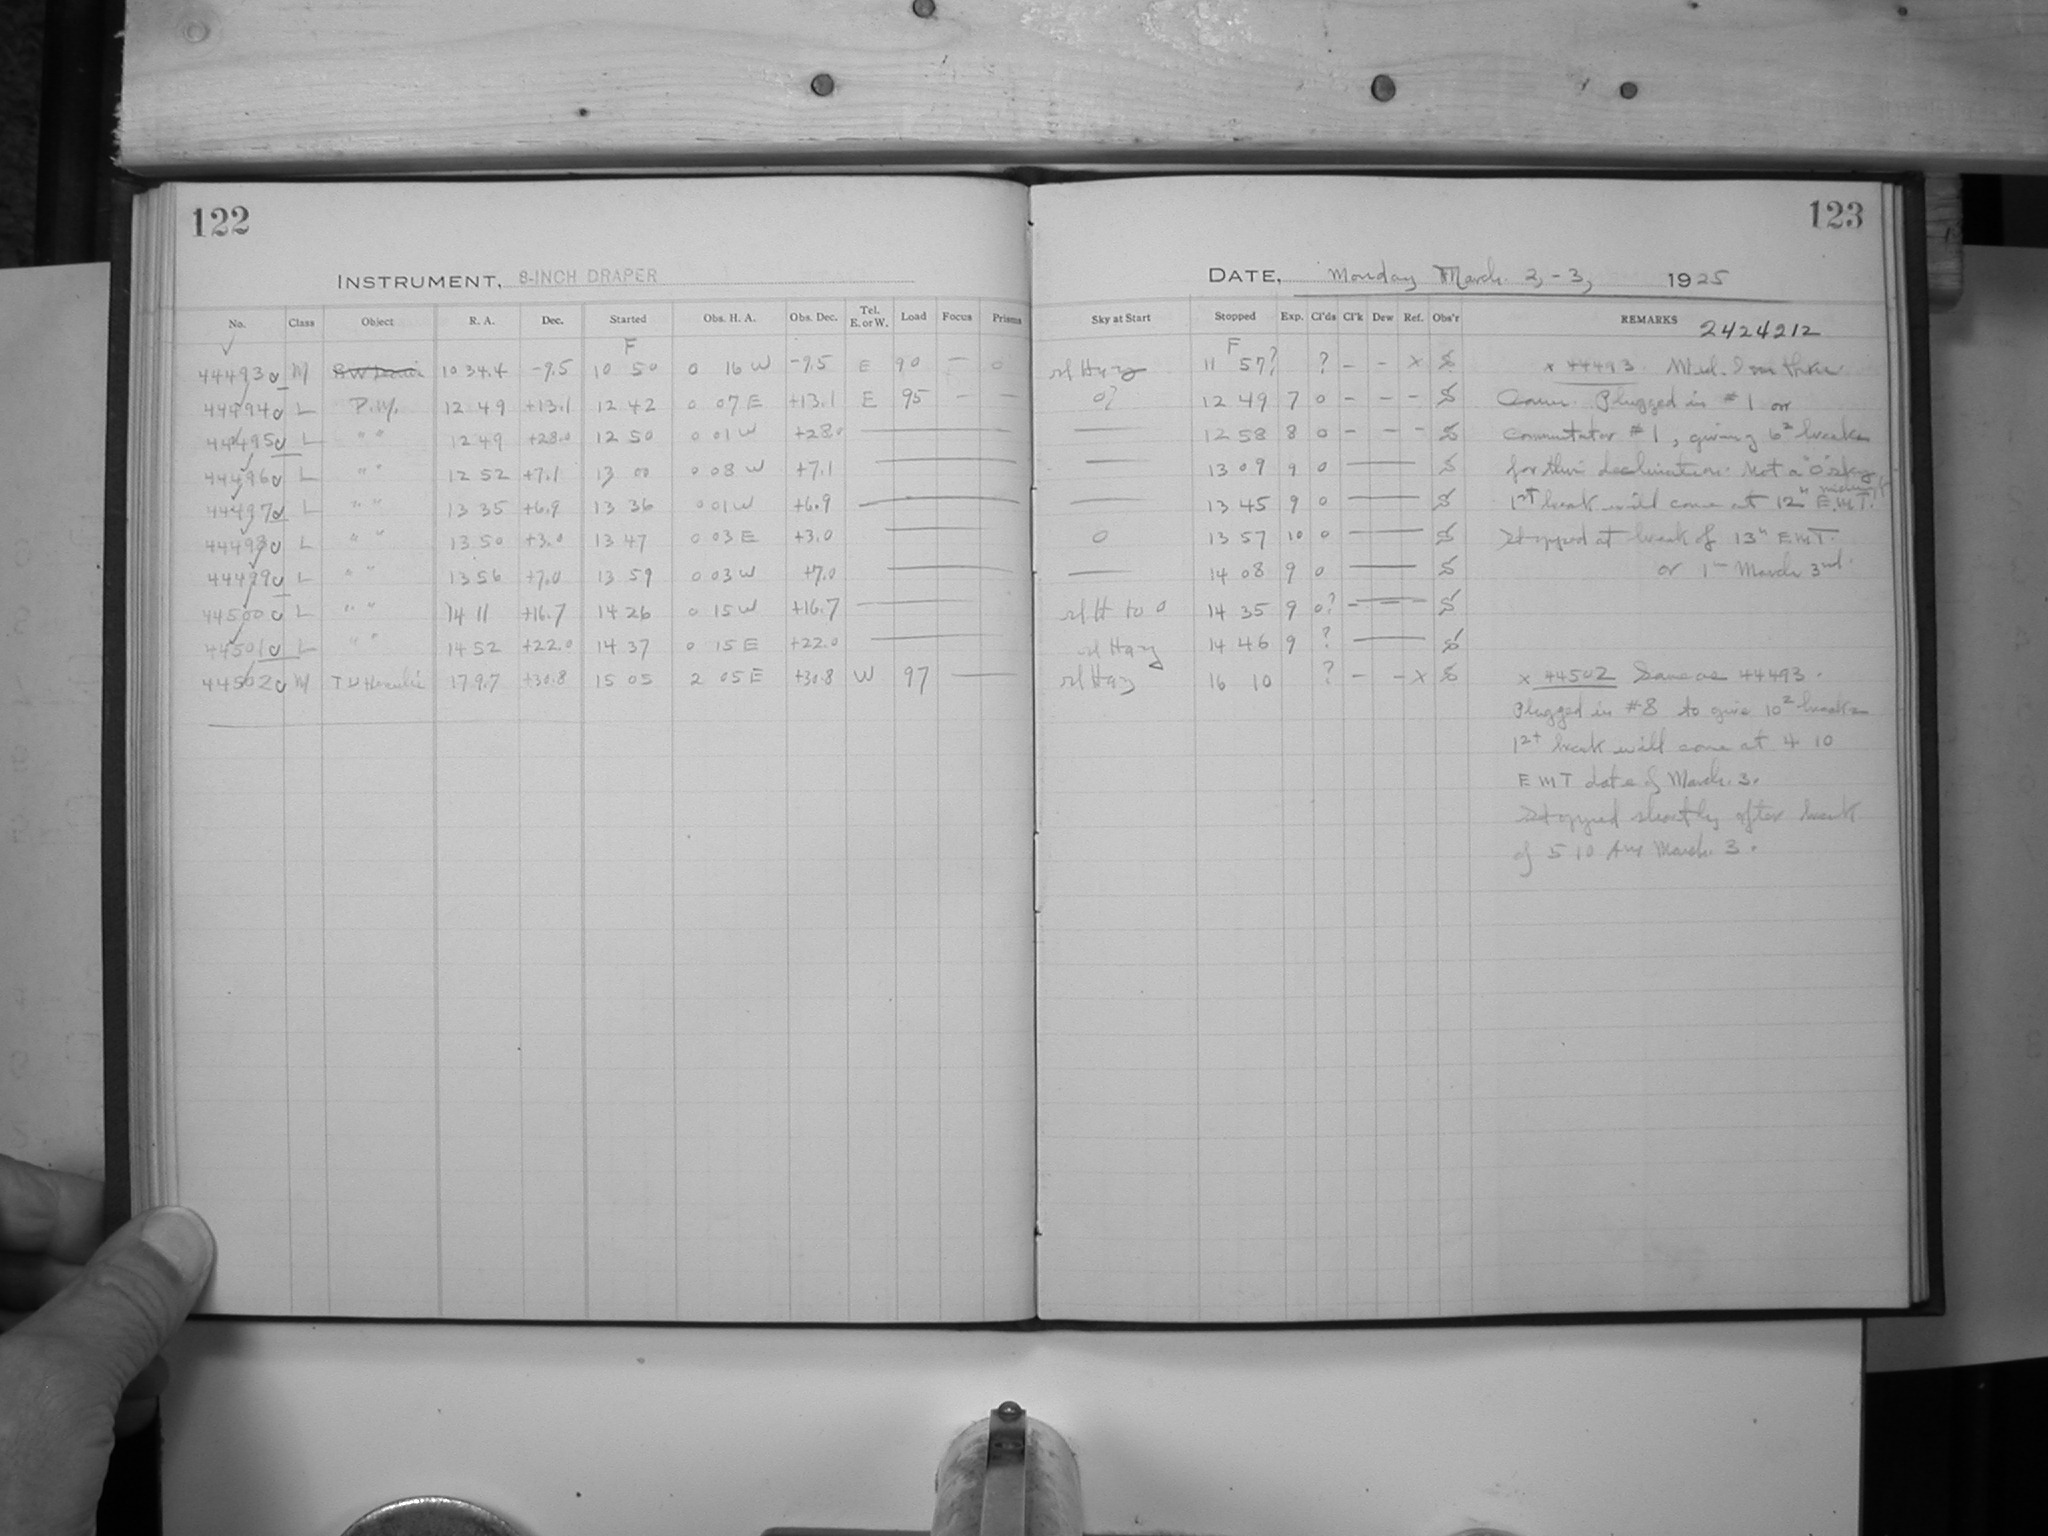 122
INSTRUMENT, 8-INCH DRAPER
No. Class Object R. A. Dec. Started Obs. H. A. Obs. Dec. Tel. E. or W. Load Focus Prisms
F
44493 M 10 34.4 -9.5 10 50 0 16 W -9.5 E 90 — 0
44494 L P.M. 12 49 +13.1 12 42 0 07 E +13.1 E 95 — —
44495 L " " 12 49 +28.0 12 50 0 01 W +28.0
44496 L " " 12 52 +7.1 13 00 0 08 W +7.1
44497 L " " 13 35 +6.9 13 36 0 01 W +6.9
44498 L " " 13 50 +3.0 13 47 0 03 E +3.0
44499 L " " 13 56 +7.0 13 59 0 03 W +7.0
44500 L " " 14 11 +16.7 14 26 0 15 W +16.7
44501 L " " 14 52 +22.0 14 37 0 15 E +22.0
44502 M 17 9.7 +30.8 15 05 2 05 E +30.8 W 97 —
123
DATE, Monday March 2,-3, 1925
Sky at Start Stopped Exp. Cl'ds Cl'k Dew Ref. Obs'r REMARKS 2424212
F
11 57? ? – – x × 44493.
0? 12 49 7 0 – – – Plugged in #1 or
— 12 58 8 0 – – – Commutator #1, giving 6 breaks
— 13 09 9 0 — for this declination. Not a "0" sky
— 13 45 9 0 — 1st break will come at 12h E.M.T.
0 13 57 10 0 — Stopped at break of 13h E.M.T.
— 14 08 9 0 — or 1h March 3rd.
14 35 9 0? – – –
14 46 9 ? —
16 10 ? – – x × 44502 Same as 44493.
Plugged in #8 to give 10 breaks
1st break will come at 4 10
EMT date of March 3.
Stopped shortly after break
of 5 10 March 3.